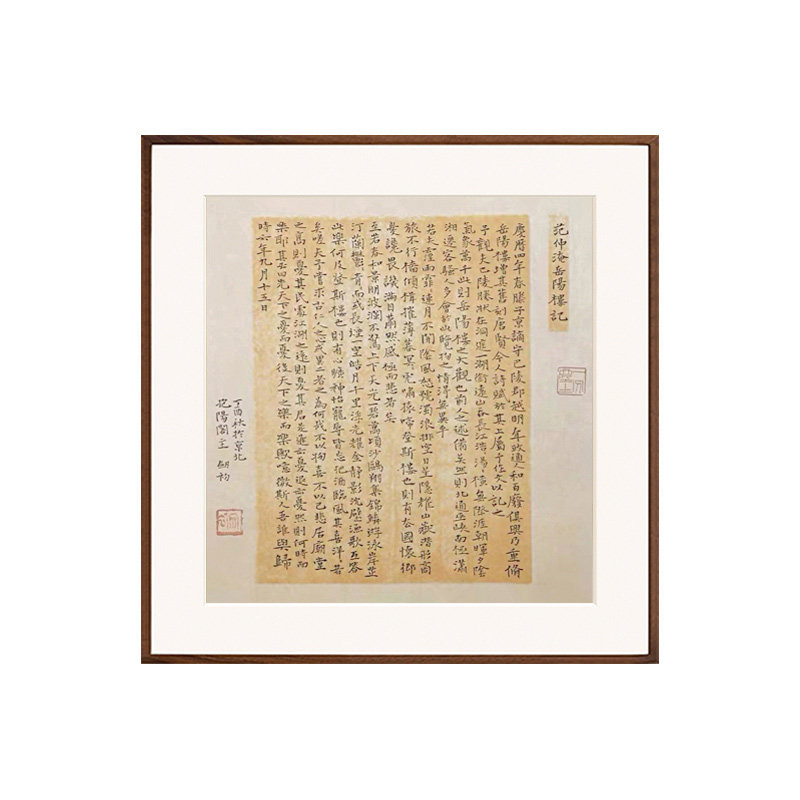 范仲淹岳陽樓記
慶曆四年春滕子京謫守巴陵郡越明年政通人和百廢俱興乃重脩
岳陽樓增其舊制刻唐賢今人詩賦於其上屬予作文以記之
予觀夫巴陵勝狀在洞庭一湖銜遠山吞長江浩〻湯〻橫無際涯朝暉夕陰
氣象萬千此則岳陽樓之大觀也前人之述備矣然則北通巫峽南極瀟
湘遷客騷人多會於此覽物之情得無異乎
若夫霪雨霏〻連月不開陰風怒號濁浪排空日星隱耀山嶽潛形商
旅不行檣傾楫摧薄暮冥〻虎嘯猿啼登斯樓也則有去國懷鄉
憂讒畏譏滿目蕭然感極而悲者矣
至若春和景明波瀾不驚上下天光一碧萬頃沙鷗翔集錦鱗游泳岸芷
汀蘭鬱〻青〻而或長煙一空皓月千里浮光耀金靜影沈璧漁歌互答
此樂何極登斯樓也則有心曠神怡寵辱皆忘把酒臨風其喜洋〻者
矣嗟夫予嘗求古仁人之心或異二者之為何哉不以物喜不以己悲居廟堂
之高則憂其民處江湖之遠則憂其君是進亦憂退亦憂然則何時而
樂耶其必曰先天下之憂而憂後天下之樂而樂歟噫微斯人吾誰與歸
時六年九月十五日
丁酉秋於京北
抱陽閣主